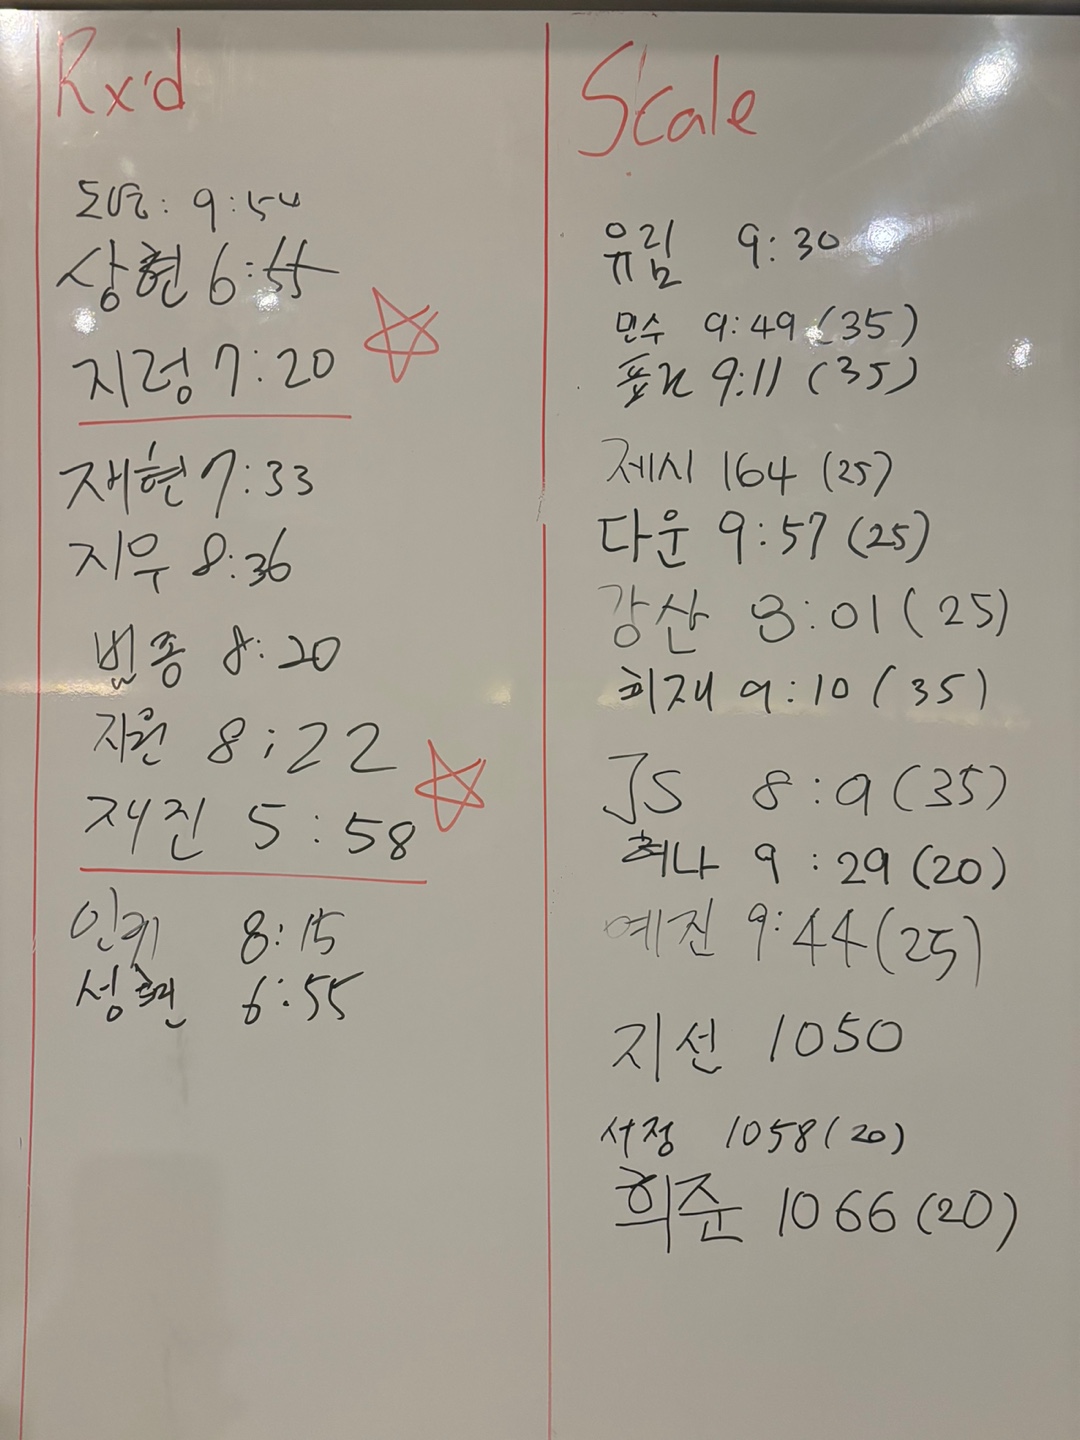 Rx'd
: 9:54
상현 6:55
지령 7:20
재현 7:33
지우 8:36
범종 8:20
지원 8:22
재진 5:58
8:15
6:55
Scale
유림 9:30
민수 9:49 (35)
9:11 (35)
제시 164 (25)
다운 9:57 (25)
강산 8:01 (25)
희재 9:10 (35)
JS 8:9 (35)
혜나 9:29 (20)
예진 9:44 (25)
지선 1050
서정 1058 (20)
희준 1066 (20)